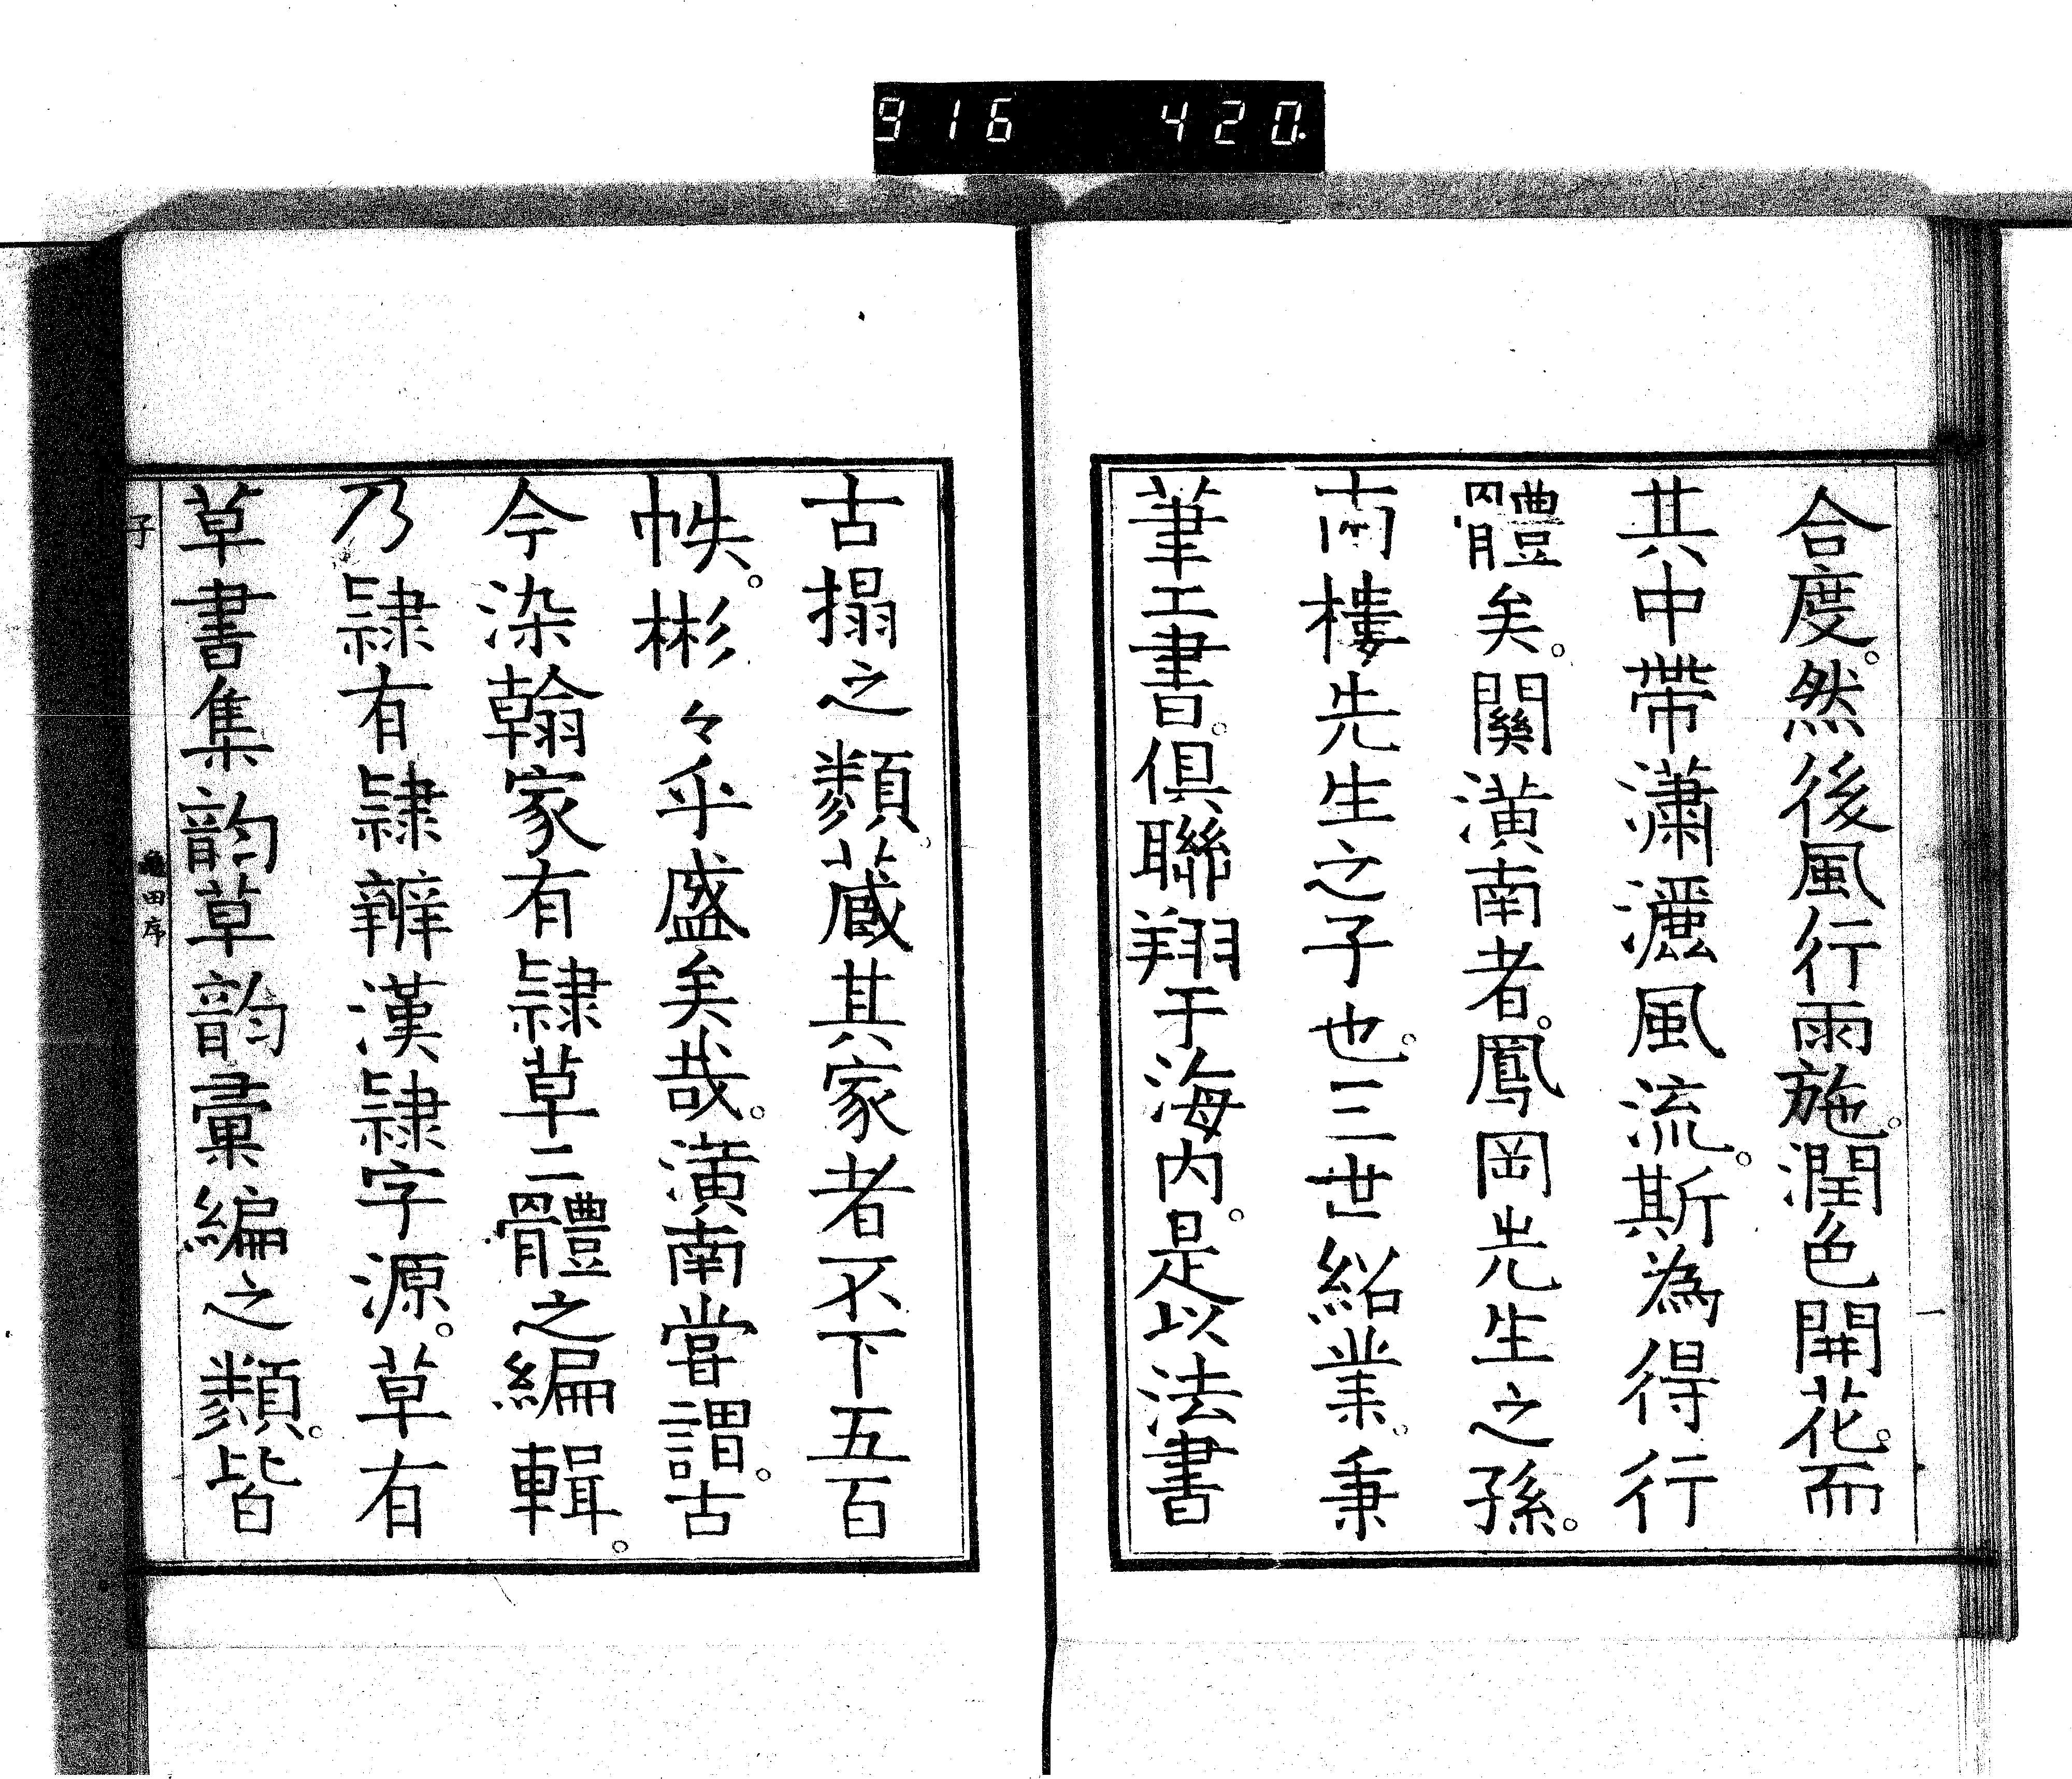 916 420.
合度。然後風行雨施。潤色開花。而
其中帶瀟灑風流。斯為得行
體矣。關潢南者。鳳岡先生之孫。
南樓先生之子也。三世紹業。秉
筆工書。俱聯翔于海内。是以法書
一
古搨之類。藏其家者不下五百
帙。彬々乎盛矣哉。潢南嘗謂。古
今染翰家有隷草二體之編輯。
乃隷有隷辨漢隷字源。草有
草書集韵草韵彙編之類。皆
子
田序